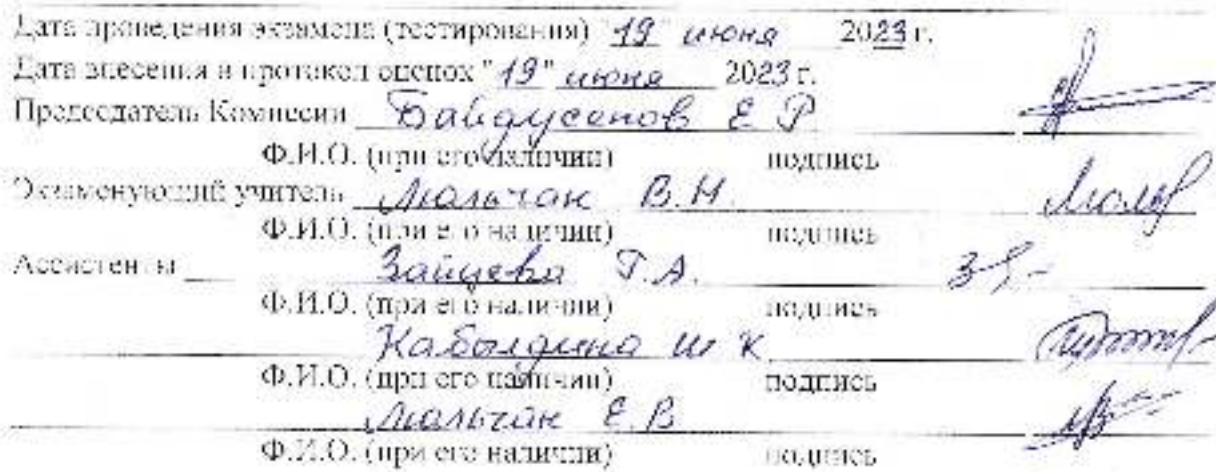 Дата проведения экзамена (тестирования) "19" июня 2023 г.
Дата внесения в протокол оценок "19" июня 2023 г.
Председатель Комиссии Байдусенов Е Р
Ф.И.О. (при его наличии) подпись
Экзаменующий учитель Мальчак В.Н.
Ф.И.О. (при его наличии) подпись
Ассистенты Зайцева Г.А.
Ф.И.О. (при его наличии) подпись
Кабылдина Ш К
Ф.И.О. (при его наличии) подпись
Мальчак Е.В
Ф.И.О. (при его наличии) подпись